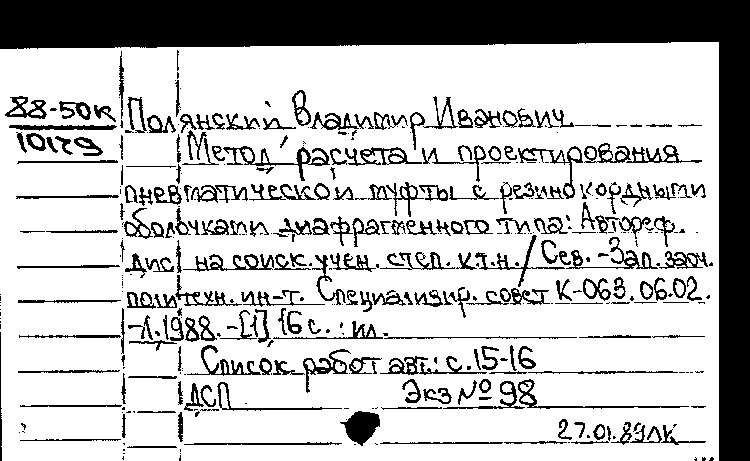 88-50к
10179
Полянский Владимир Иванович.
Метод расчета и проектирования
пневматической муфты с резинокордными
оболочками диафрагменного типа: Автореф.
дис. на соиск. учен. степ. к.т.н. / Сев.-Зап. заоч.
политехн. ин-т. Специализир. совет К-063.06.02.
-Л. 1988. -[1] 16 с. : ил.
Список работ авт.: с. 15-16
ДСП Экз № 98
27.01.89ЛК